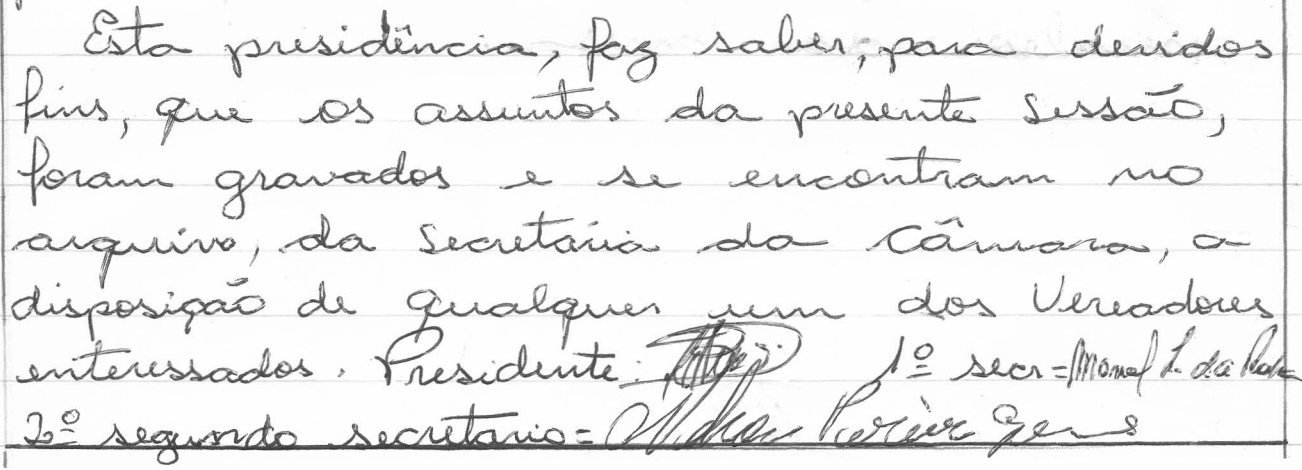 Esta presidência, faz saber, para devidos
fins, que os assuntos da presente Sessão,
foram gravados e se encontram no
arquivo, da Secretaria da Câmara, a
disposição de qualquer um dos Vereadores
interessados. Presidente: 1º secr = Manoel da
2º segundo secretario = Pereira